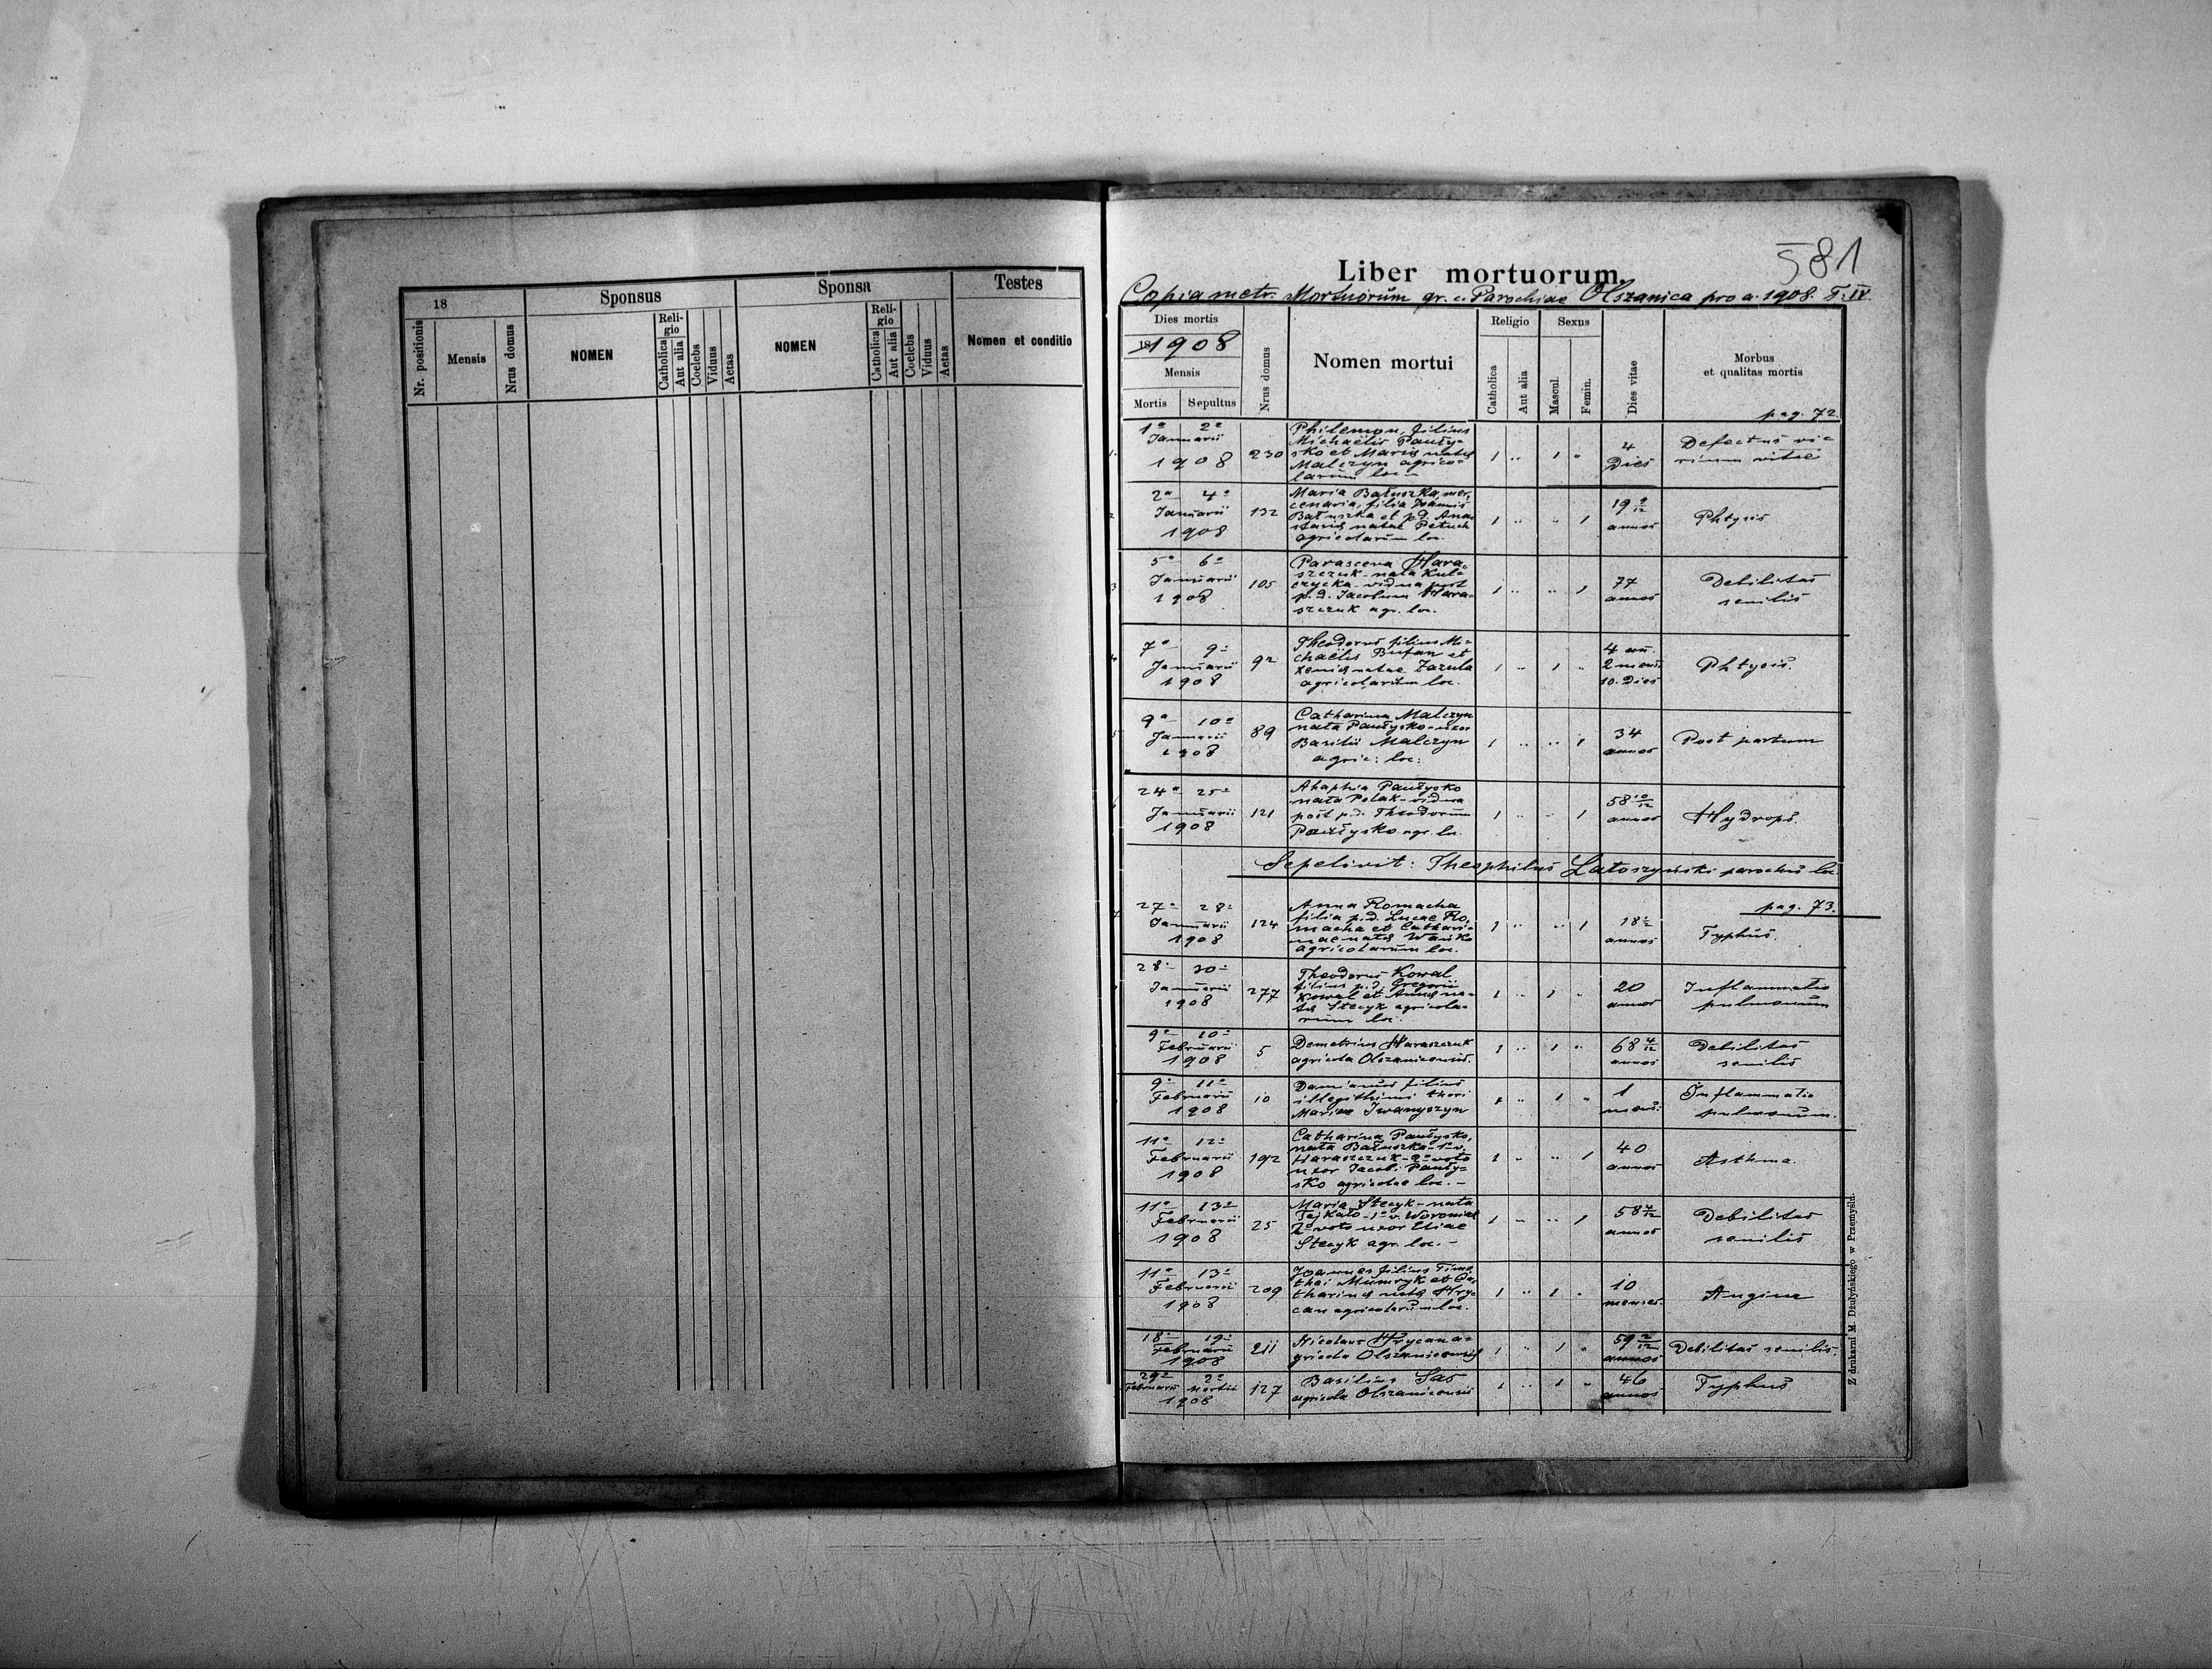 18
Sponsus
Sponsa
Testes
Nr. positionis
Mensis
Nrus domus
NOMEN
Religio
Catholica
Aut alia
Coelebs
Viduus
Aetas
NOMEN
Religio
Catholica
Aut alia
Coelebs
Viduus
Aetas
Nomen et conditio
581
Liber mortuorum.
Copia metr. Mortuorum gr. c. Parochiae Olszanica pro a. 1908. T. IV.
Dies mortis
1908
Mensis
Mortis Sepultus
Nrus domus
Nomen mortui
Religio
Catholica
Aut alia
Sexus
Mascul.
Femin.
Dies vitae
Morbus
et qualitas mortis
pag. 72.
1a 2a
Januarii
1908
230
Philemon, filius
Michaëlis Pauły-
sko et Mariae natae
Malczyn agrico-
larum loc.
1 " 1 "
4
Dies
Defectus vi-
rium vitae
2a 4a
Januarii
1908
132
Maria Bałuszka, mer-
cenaria, filia Joannis
Bałuszka et p.d. Ana-
stasiae natae Petuch
agricolarum loc.
1 " " 1
19
annos
Phtysis
3
5a 6a
Januarii
1908
105
Parasceva Hara-
szczuk nata Kul-
czycka vidua post
p.d. Jacobum Hara-
szczuk agr. loc.
1 " " 1
77
annos
Debilitas
senilis
7a 9a
Januarii
1908
92
Theodorus filius Mi-
chaëlis Bufan et
Xeniae natae Zazula
agricolarum loc.
1 " 1 "
4 an.
2 mens.
10. Dies
Phtysis.
9a 10a
Januarii
1908
89
Catharina Malczyn
nata Paułysko uxor
Basilii Malczyn
agric: loc:
1 " " 1
34
annos
Post partum
24a 25a
Januarii
1908
121
Ahaphia Paułysko
nata Polak vidua
post p.d. Theodorum
Paułysko agr. loc.
1 " " 1
58 10/12
annos
Hydrops.
Sepelivit: Theophilus Latoszyński parochus loc.
pag. 73.
27a 28a
Januarii
1908
124
Anna Romacha
filia p.d. Lucae Ro-
macha et Cathari-
nae natae Wańko
agricolarum loc.
1 " " 1
18
annos
Typhus.
28a 30a
Januarii
1908
277
Theodorus Kowal
filius p.d. Gregorii
Kowal et Annae na-
tae Stecyk agricola-
rum loc.
1 " 1 "
20
annos
Inflammatio
pulmonum
9a 10a
Februarii
1908
5
Demetrius Haraszczuk
agricola Olszanicensis.
1 " 1 "
68 4/12
annos
Debilitas
senilis
9a 11a
Februarii
1908
10
Damianus filius
illegithimi thori
Mariae Iwanyszyn
1 " 1 "
1
mens.
Inflammatio
pulmonum.
11a 12a
Februarii
1908
192
Catharina Paułysko,
nata Bałuszka 1o v.
Haraszczuk 2o voto
uxor Jacobi Pauły-
sko agricolae loc.
1 " " 1
40
annos
Asthma.
11a 13a
Februarii
1908
25
Maria Stecyk nata
Fejkało 1o v. Woroniak
2o voto uxor Eliae
Stecyk agr. loc.
1 " " 1
58
annos
Debilitas
senilis
11a 13a
Februarii
1908
209
Joannes filius Timo-
thei Mumryk et Ca-
tharinae natae Hry-
can agricolarum loc.
1 " 1 "
10
menses.
Angina
18a 19a
Februarii
1908
211
Nicolaus Hrycan a-
gricola Olszanicensis
1 " 1 "
59 2/12
annos
Debilitas senilis.
29a 2a
Februarii Martii
1908
127
Basilius Sas
agricola Olszanicensis
1 " 1 "
46
annos
Typhus
Z drukarni M. Dżulyńskiego w Przemyślu.